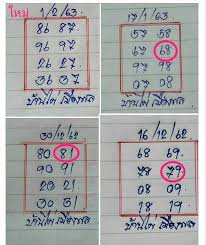 ใหม่ 1/2/63
86 87
96 97
26 27
36 37
บ้านไผ่ เมืองพล
17/1/63
57 58
67 68
97 98
07 08
บ้านไผ่ เมืองพล
30/12/62
80 81
90 91
20 21
30 31
บ้านไผ่ เมืองพล
16/12/62
68 69
78 79
08 09
18 19
บ้านไผ่ เมืองพล